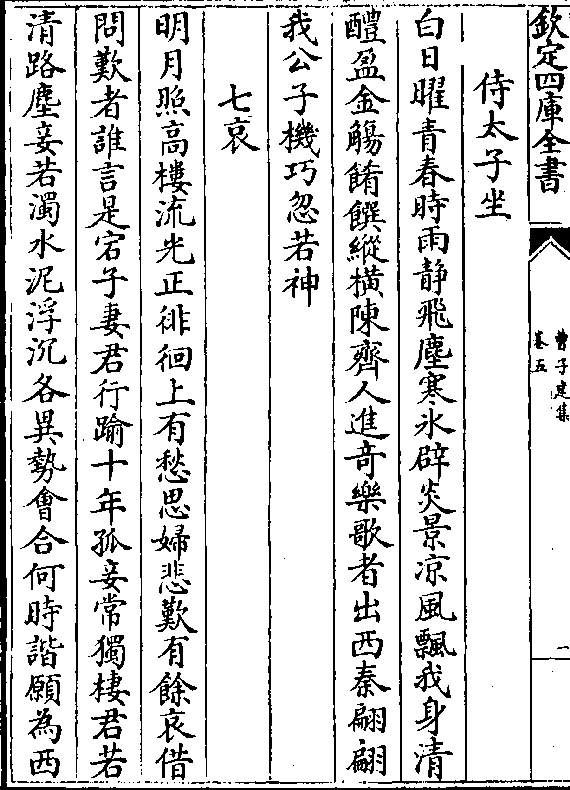 欽定四庫全書
曹子建集
卷五
一
侍太子坐
白日曜青春時雨静飛塵寒氷辟炎景凉風飄我身清
醴盈金觴餚饌縱橫陳齊人進奇樂歌者出西秦翩翩
我公子機巧忽若神
七哀
明月照高樓流光正徘徊上有愁思婦悲歎有餘哀借
問歎者誰言是宕子妻君行踰十年孤妾常獨棲君若
清路塵妾若濁水泥浮沉各異勢會合何時諧願為西